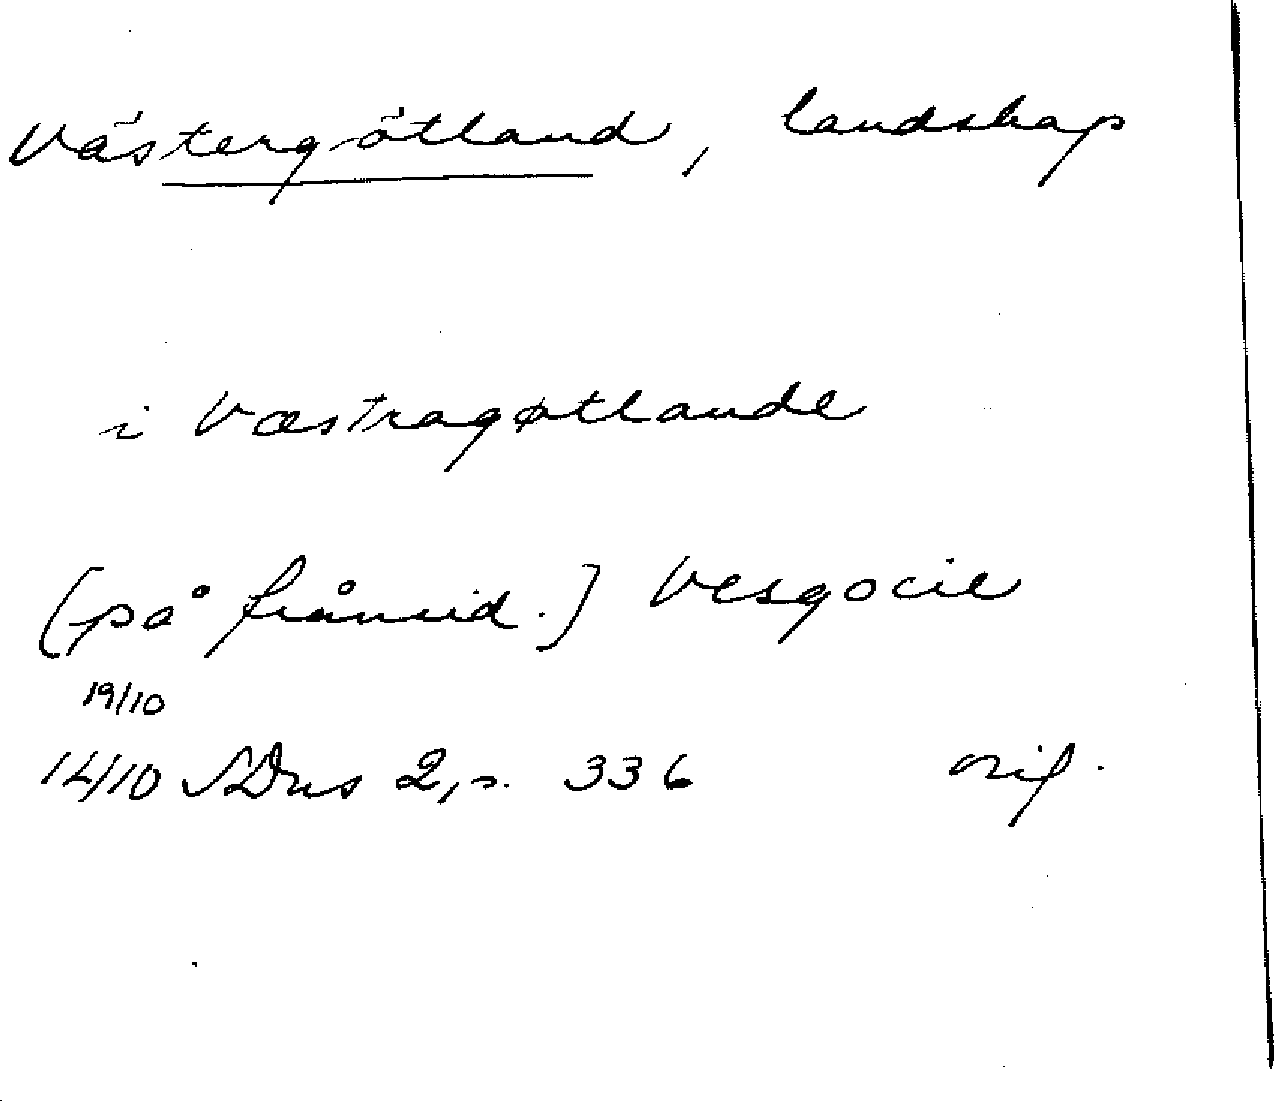 Västergötland, landskap
i Væstragøtlande
[på frånsid.] Vesgocie
19/10
14/10 SDns 2, s. 336 orig.